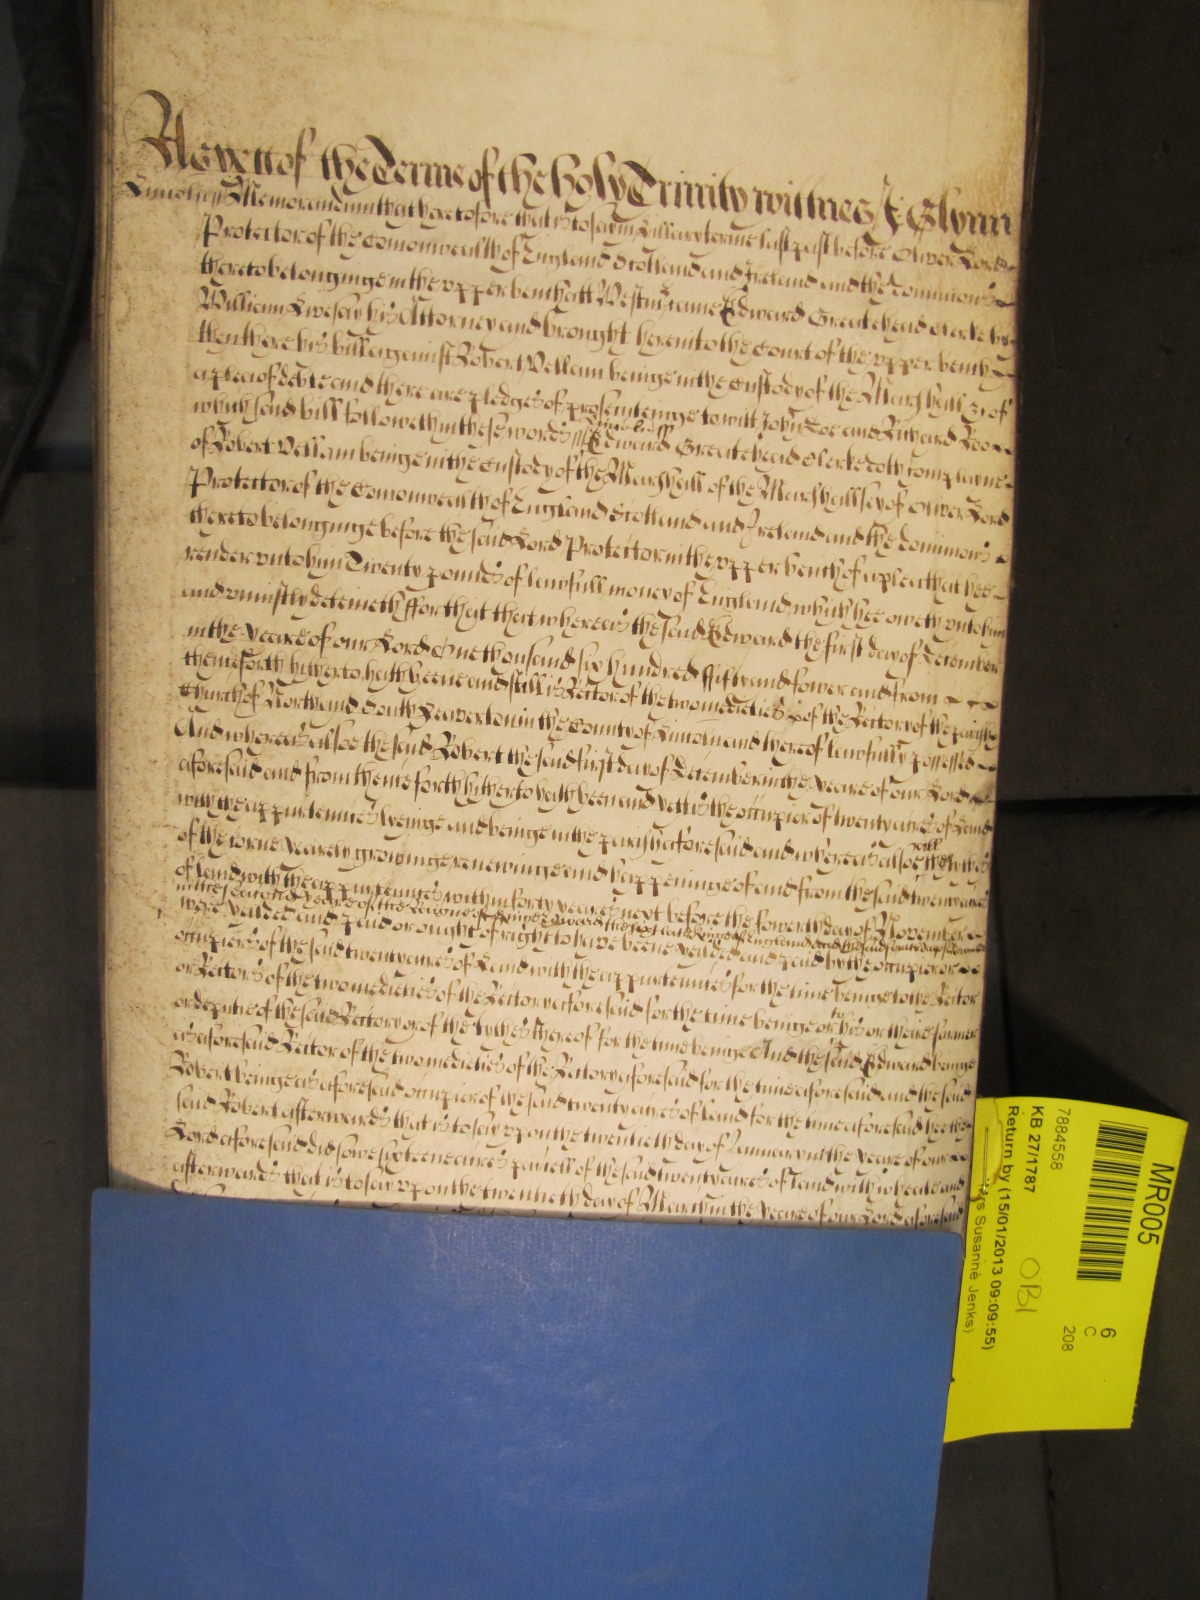 As yett of the Terme of the holy Trinity wittnes J Glynn
Lincolne ss Memorandum that heretofore that is to say in Hillary terme last past before Oliver Lord
Protector of the Comonwealth of England Scotland and Ireland and the Dominions
thereto belonginge in the upper bench att Westm came Edward Greatehead Clerke by
William Livesay his Attorney and brought here into the Court of the upper bench
then there his bill against Robert Vellam beinge in the Custody of the Marshall &c of
a plea of debte and there are pledges of prosecuteinge to witt John Doe and Richard Roo
which said bill followeth in these words ss Lincolne ss Edward Greatehead Clerke doth complaine
of Robert Vellam beinge in the Custody of the Marshall of the Marshallsey of Oliver Lord
Protector of the Comonwealth of England Scotland and Ireland and the dominions
thereto belonginge before the said Lord Protector in the upper bench of a plea that hee
render unto him Twenty pounds of lawfull money of England which hee oweth unto him
and uniustly deteineth ffor that that whereas the said Edward the first day of December
in the yeare of our Lord One thousand six hundred ffifty and fower and from
thence forth hitherto hath beene and still is Rector of the two medieties of the Rectory of the parish
Church of North and South in the County of Lincoln and thereof lawfully possessed
And whereas alsoe the said Robert the said first day of December in the yeare of our Lord
aforesaid and from thence forth hitherto hath been and yett is the occupier of twenty acres of Land
with the appurtennces lyeinge and beinge in the parish aforesaid and whereas alsoe all the tithes
of the corne yearely growinge renewinge and happeninge of and from the said twenty acres
of land with the appurtennces within forty yeares next before the fowerth day of November
in the second yeare of the Raigne of Edward the sixt late Kinge of England and the said fourth day of November
were yeilded and paid or ought of right to have beene yeilded and paid by the occupier or
occupiers of the said twenty acres of Land with the appurtennces for the time beinge to the Rector
or Rectors of the two medieties of the Rectory aforesaid for the time beinge or to his or their farmer
or deputie of the said Rectory or of the tythes thereof for the time beinge And the said Edward beinge
as aforesaid Rector of the two medieties of the Rectory aforesaid for the time aforesaid and the said
Robert beinge as aforesaid occupier of the said twenty acres of land for the time aforesaid hee the
said Robert afterwards that is to say upon the twentieth day of January in the yeare of our
Lord aforesaid did sowe sixteene acres parcell of the said twenty acres of land with wheate and
afterwards that is to say upon the twentieth day of March in the yeare of our Lord aforesaid
MR005
6
C
208
7884558
KB 27/1787
OBI
Return by (15/01/2013 09:09:55)
Mrs Susanne Jenks)